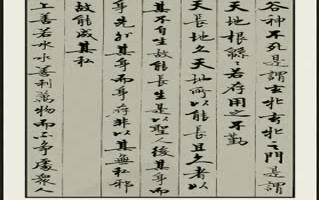 谷神不死是謂玄牝玄牝之門是謂
天地根緜〻若存用之不勤
天長地久天地所以能長且久者以
其不自生故能長生是以聖人後其身而
身先外其身而身存非以其無私邪
故能成其私
上善若水水善利萬物而不爭處衆人